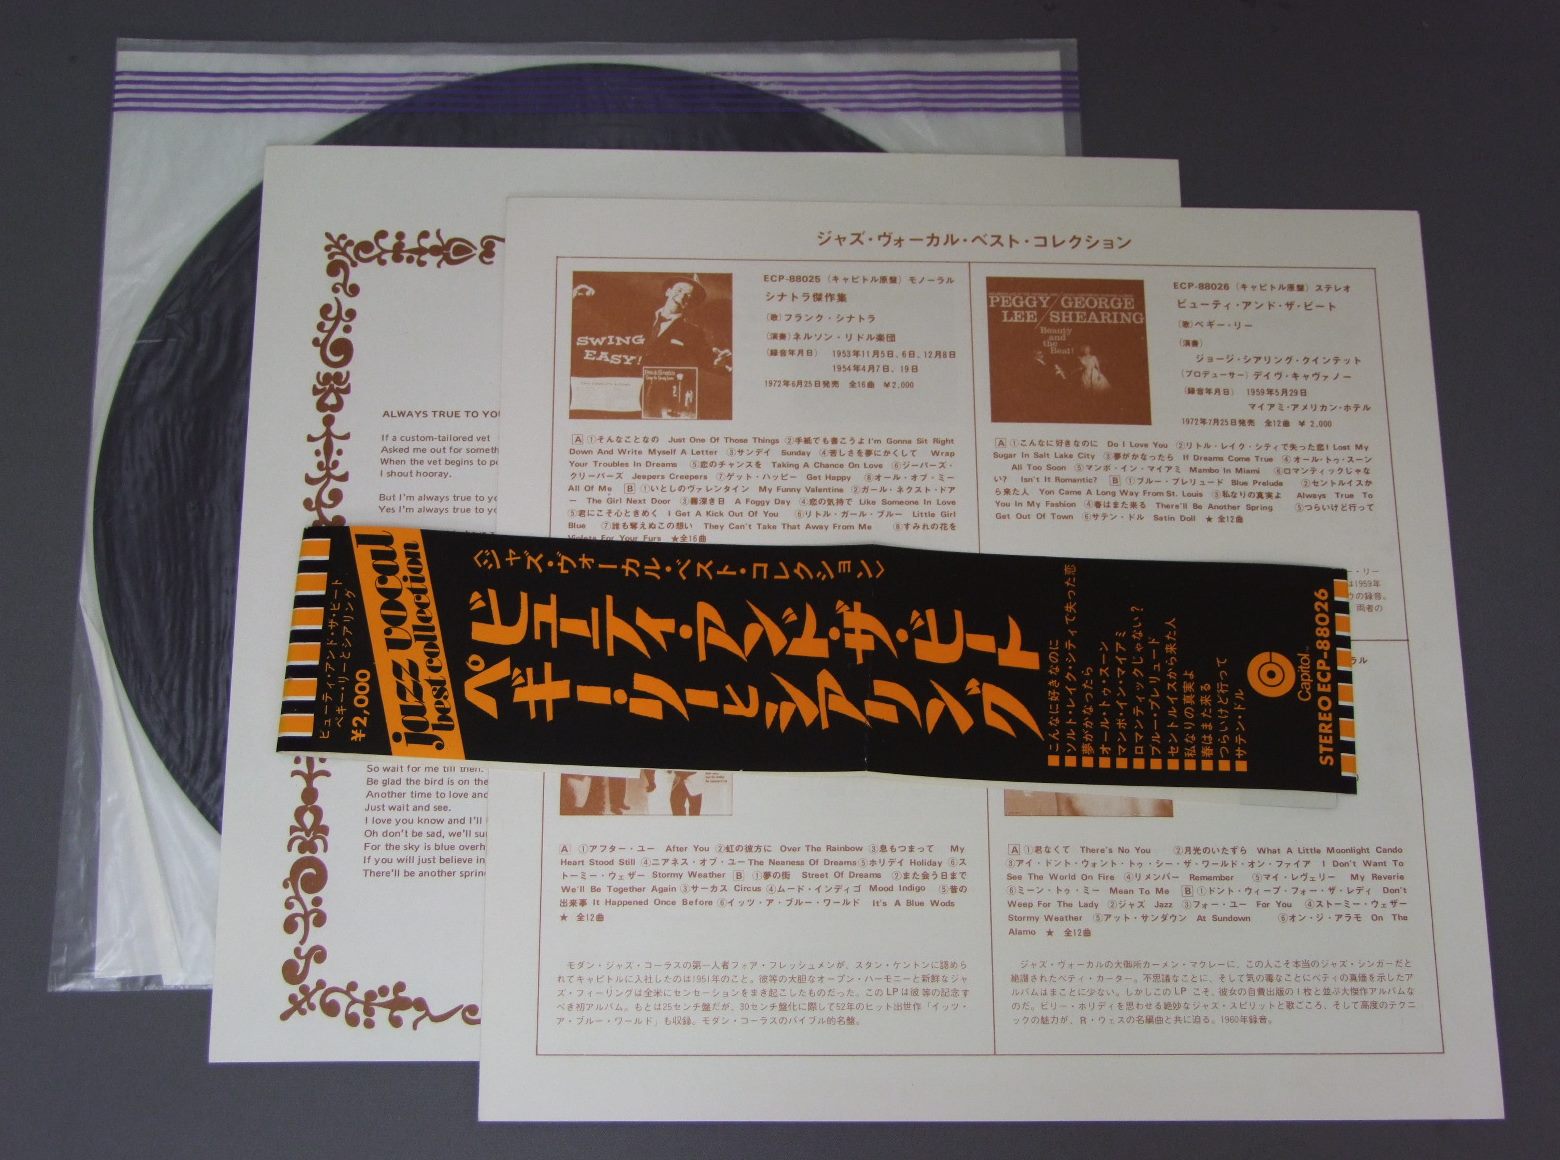 ジャズ・ヴォーカル・ベスト・コレクション
ECP-88025 (キャピトル原盤) モノーラル
シナトラ傑作集
(歌) フランク・シナトラ
(演奏) ネルソン・リドル楽団
(録音年月日) 1953年11月5日、6日、12月8日
1954年4月7日、19日
1972年6月25日発売 全16曲 ¥2,000
SWING
EASY!
A ①そんなことなの Just One Of Those Things ②手紙でも書こうよ I'm Gonna Sit Right
Down And Write Myself A Letter ③サンデイ Sunday ④苦しさを夢にかくして Wrap
Your Troubles In Dreams ⑤恋のチャンスを Taking A Chance On Love ⑥ジーパーズ・
クリーパーズ Jeepers Creepers ⑦ゲット・ハッピー Get Happy ⑧オール・オブ・ミー
All Of Me B ①いとしのヴァレンタイン My Funny Valentine ②ガール・ネクスト・ドア
ー The Girl Next Door ③霧深き日 A Foggy Day ④恋の気持で Like Someone In Love
⑤君にこそ心ときめく I Get A Kick Out Of You ⑥リトル・ガール・ブルー Little Girl
Blue ⑦誰も奪えぬこの想い They Can't Take That Away From Me ⑧すみれの花を
Violets For Your Furs ★全16曲
ECP-88026 (キャピトル原盤) ステレオ
ビューティ・アンド・ザ・ビート
(歌) ペギー・リー
(演奏)
ジョージ・シアリング・クインテット
(プロデューサー) デイヴ・キャヴァノー
(録音年月日) 1959年5月29日
マイアミ・アメリカン・ホテル
1972年7月25日発売 全12曲 ¥ 2,000
PEGGY/GEORGE
LEE/SHEARING
Beauty
and
the
Beat!
A ①こんなに好きなのに Do I Love You ②リトル・レイク・シティで失った恋 I Lost My
Sugar In Salt Lake City ③夢がかなったら If Dreams Come True ④オール・トゥ・スーン
All Too Soon ⑤マンボ・イン・マイアミ Mambo In Miami ⑥ロマンティックじゃな
い? Isn't It Romantic? B ①ブルー・プレリュード Blue Prelude ②セントルイスか
ら来た人 You Came A Long Way From St. Louis ③私なりの真実よ Always True To
You In My Fashion ④春はまた来る There'll Be Another Spring ⑤つらいけど行って
Get Out Of Town ⑥サテン・ドル Satin Doll ★全12曲
ALWAYS TRUE TO YOU
If a custom-tailored vet
Asked me out for someth
When the vet begins to pe
I shout hooray.
But I'm always true to yo
Yes I'm always true to yo
ビューティ・アンド・ザ・ビート
ペギー・リーとシアリング
¥2,000
jazz vocal
best collection
〈ジャズ・ヴォーカル・ベスト・コレクション〉
ビューティ・アンド・ザ・ビート
ペギー・リーとシアリング
■こんなに好きなのに
■ソルト・レイク・シティで失った恋
■夢がかなったら
■オール・トゥ・スーン
■マンボ・イン・マイアミ
■ロマンティックじゃない?
■ブルー・プレリュード
■セントルイスから来た人
■私なりの真実よ
■春はまた来る
■つらいけど行って
■サテン・ドル
Capitol
STEREO ECP-88026
So wait for me till then.
Be glad the bird is on the
Another time to love and
Just wait and see.
I love you know and I'll
Oh don't be sad, we'll su
For the sky is blue overh
If you will just believe in
There'll be another sprin
A ①アフター・ユー After You ②虹の彼方に Over The Rainbow ③息もつまって My
Heart Stood Still ④ニアネス・オブ・ユー The Neaness Of Dreams ⑤ホリデイ Holiday ⑥ス
トーミー・ウェザー Stormy Weather B ①夢の街 Street Of Dreams ②また会う日まで
We'll Be Together Again ③サーカス Circus ④ムード・インディゴ Mood Indigo ⑤昔の
出来事 It Happened Once Before ⑥イッツ・ア・ブルー・ワールド It's A Blue Wods
★ 全12曲
モダン・ジャズ・コーラスの第一人者フォア・フレッシュメンが、スタン・ケントンに認めら
れてキャピトルに入社したのは1951年のこと。彼等の大胆なオープン・ハーモニーと新鮮なジャ
ズ・フィーリングは全米にセンセーションをまき起こしたものだった。このLPは彼等の記念す
べき初アルバム。もとは25センチ盤だが、30センチ盤化に際して52年のヒット出世作「イッツ・
ア・ブルー・ワールド」も収録。モダン・コーラスのバイブル的名盤。
A ①君なくて There's No You ②月光のいたずら What A Little Moonlight Cando
③アイ・ドント・ウォント・トゥ・シー・ザ・ワールド・オン・ファイア I Don't Want To
See The World On Fire ④リメンバー Remember ⑤マイ・レヴェリー My Reverie
⑥ミーン・トゥ・ミー Mean To Me B ①ドント・ウィープ・フォー・ザ・レディ Don't
Weep For The Lady ②ジャズ Jazz ③フォー・ユー For You ④ストーミー・ウェザー
Stormy Weather ⑤アット・サンダウン At Sundown ⑥オン・ジ・アラモ On The
Alamo ★ 全12曲
ジャズ・ヴォーカルの大御所カーメン・マクレーに、この人こそ本当のジャズ・シンガーだと
絶讃されたベティ・カーター。不思議なことに、そして気の毒なことにベティの真価を示したア
ルバムはまことに少ない。しかしこのLPこそ、彼女の自費出版の1枚と並ぶ大傑作アルバムな
のだ。ビリー・ホリデイを思わせる絶妙なジャズ・スピリットと歌ごころ、そして高度のテクニ
ックの魅力が、R・ウェスの名編曲と共に迫る。1960年録音。